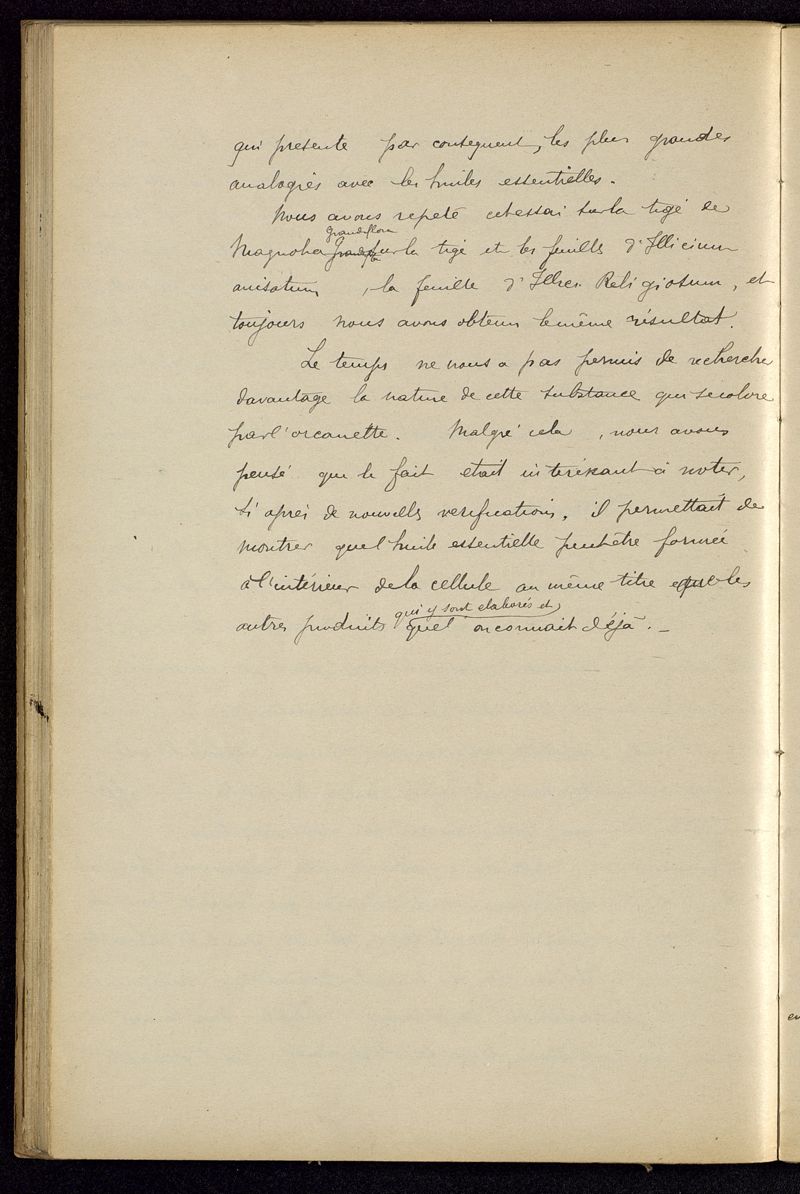 qui presente par consequent, les plus grandes
analogies avec les huiles essentielles.
Nous avons repeté cet essai sur la tige de
Grandiflora
Magnolia sur la tige et les feuilles d'Illicium
anisatum, la feuille d'Illici. Religiosum, et
toujours nous avons obtenu le même résultat.
Le temps ne nous a pas permis de recherche
davantage la nature de cette substance qui se colore
par l'orcanette. Malgré cela, nous avons
pensé que le fait etait intéressant à noter,
si après de nouvelles verifications, il permettait de
montrer que l'huile essentielle peut être formée
à l'intérieur de la cellule au même titre que les
qui y sont elaborés et
autres produits que l'on connait déjà. _
en